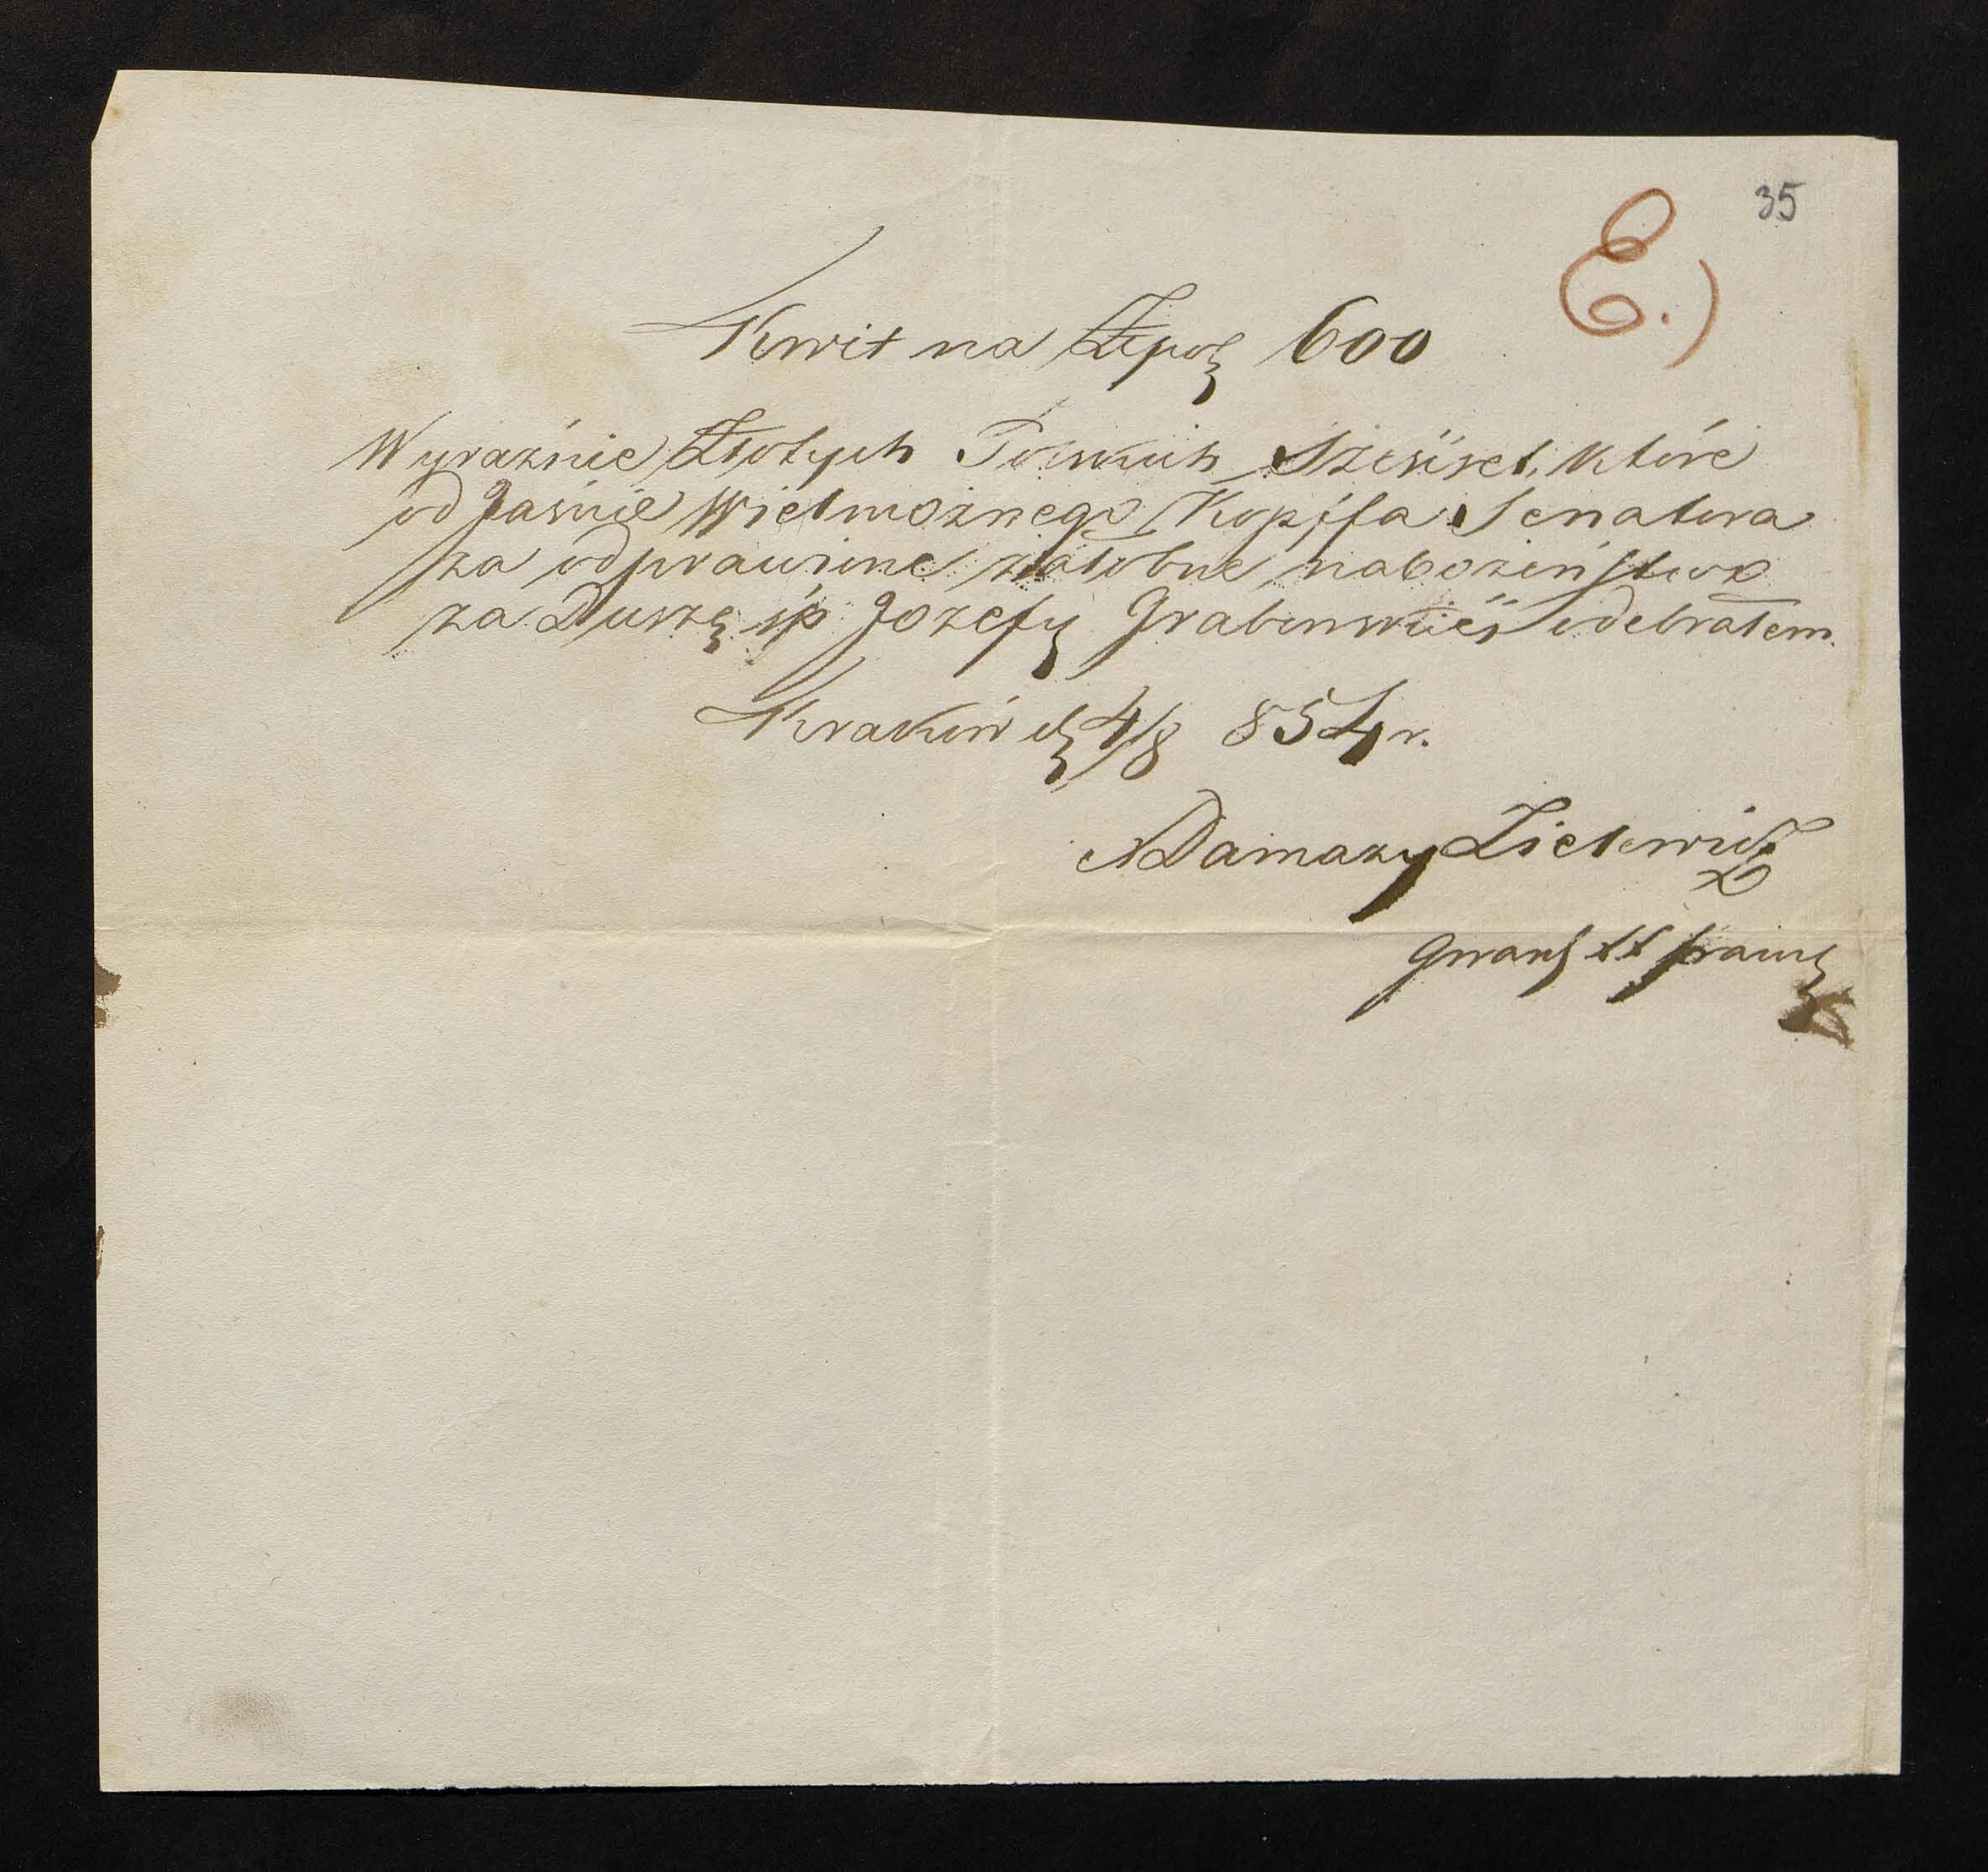 35
E.)
Kwit na Złpol 600
Wyraźnie Złotych Polskich Sześćset, które
od Jaśnie Wielmożnego Kopffa Senatora
za odprawione żałobne nabożeństwo
za Duszę śp Józefy Grabowskiéj odebrałem.
Kraków d 4/8 854 r.
Damazy Zielewicz